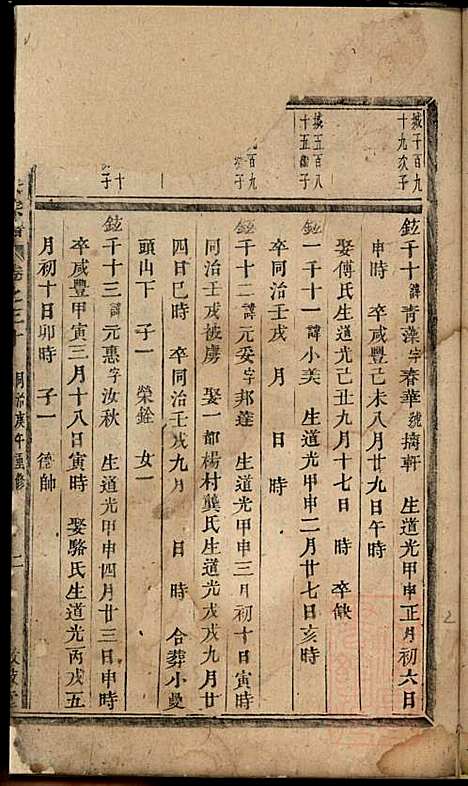 城千百九
十九次子
鉉千十諱青藻字春華號摛軒 生道光甲申正月初六日
申時 卒咸豐己未八月廿九日午時
娶傅氏生道光己丑九月十七日 時 卒缺
城五百八
十五繼子
鉉一千十一諱小美 生道光甲申二月廿七日亥時
卒同治壬戌 月 日 時
百九
子
鉉千十二諱元妥字邦蓬 生道光甲申三月初十日寅時
同治壬戌被虜 娶一都楊村龔氏生道光戊戌九月廿
四日巳時 卒同治壬戌九月 日 時 合葬小曼
頭山下 子一 榮銓 女一
十
子
鉉千十三諱元惠字汝秋 生道光甲申四月廿三日申時
卒咸豐甲寅三月十八日寅時 娶駱氏生道光丙戌五
月初十日卯時 子一 德帥
宗譜 卷之三十 同治庚午重修 二